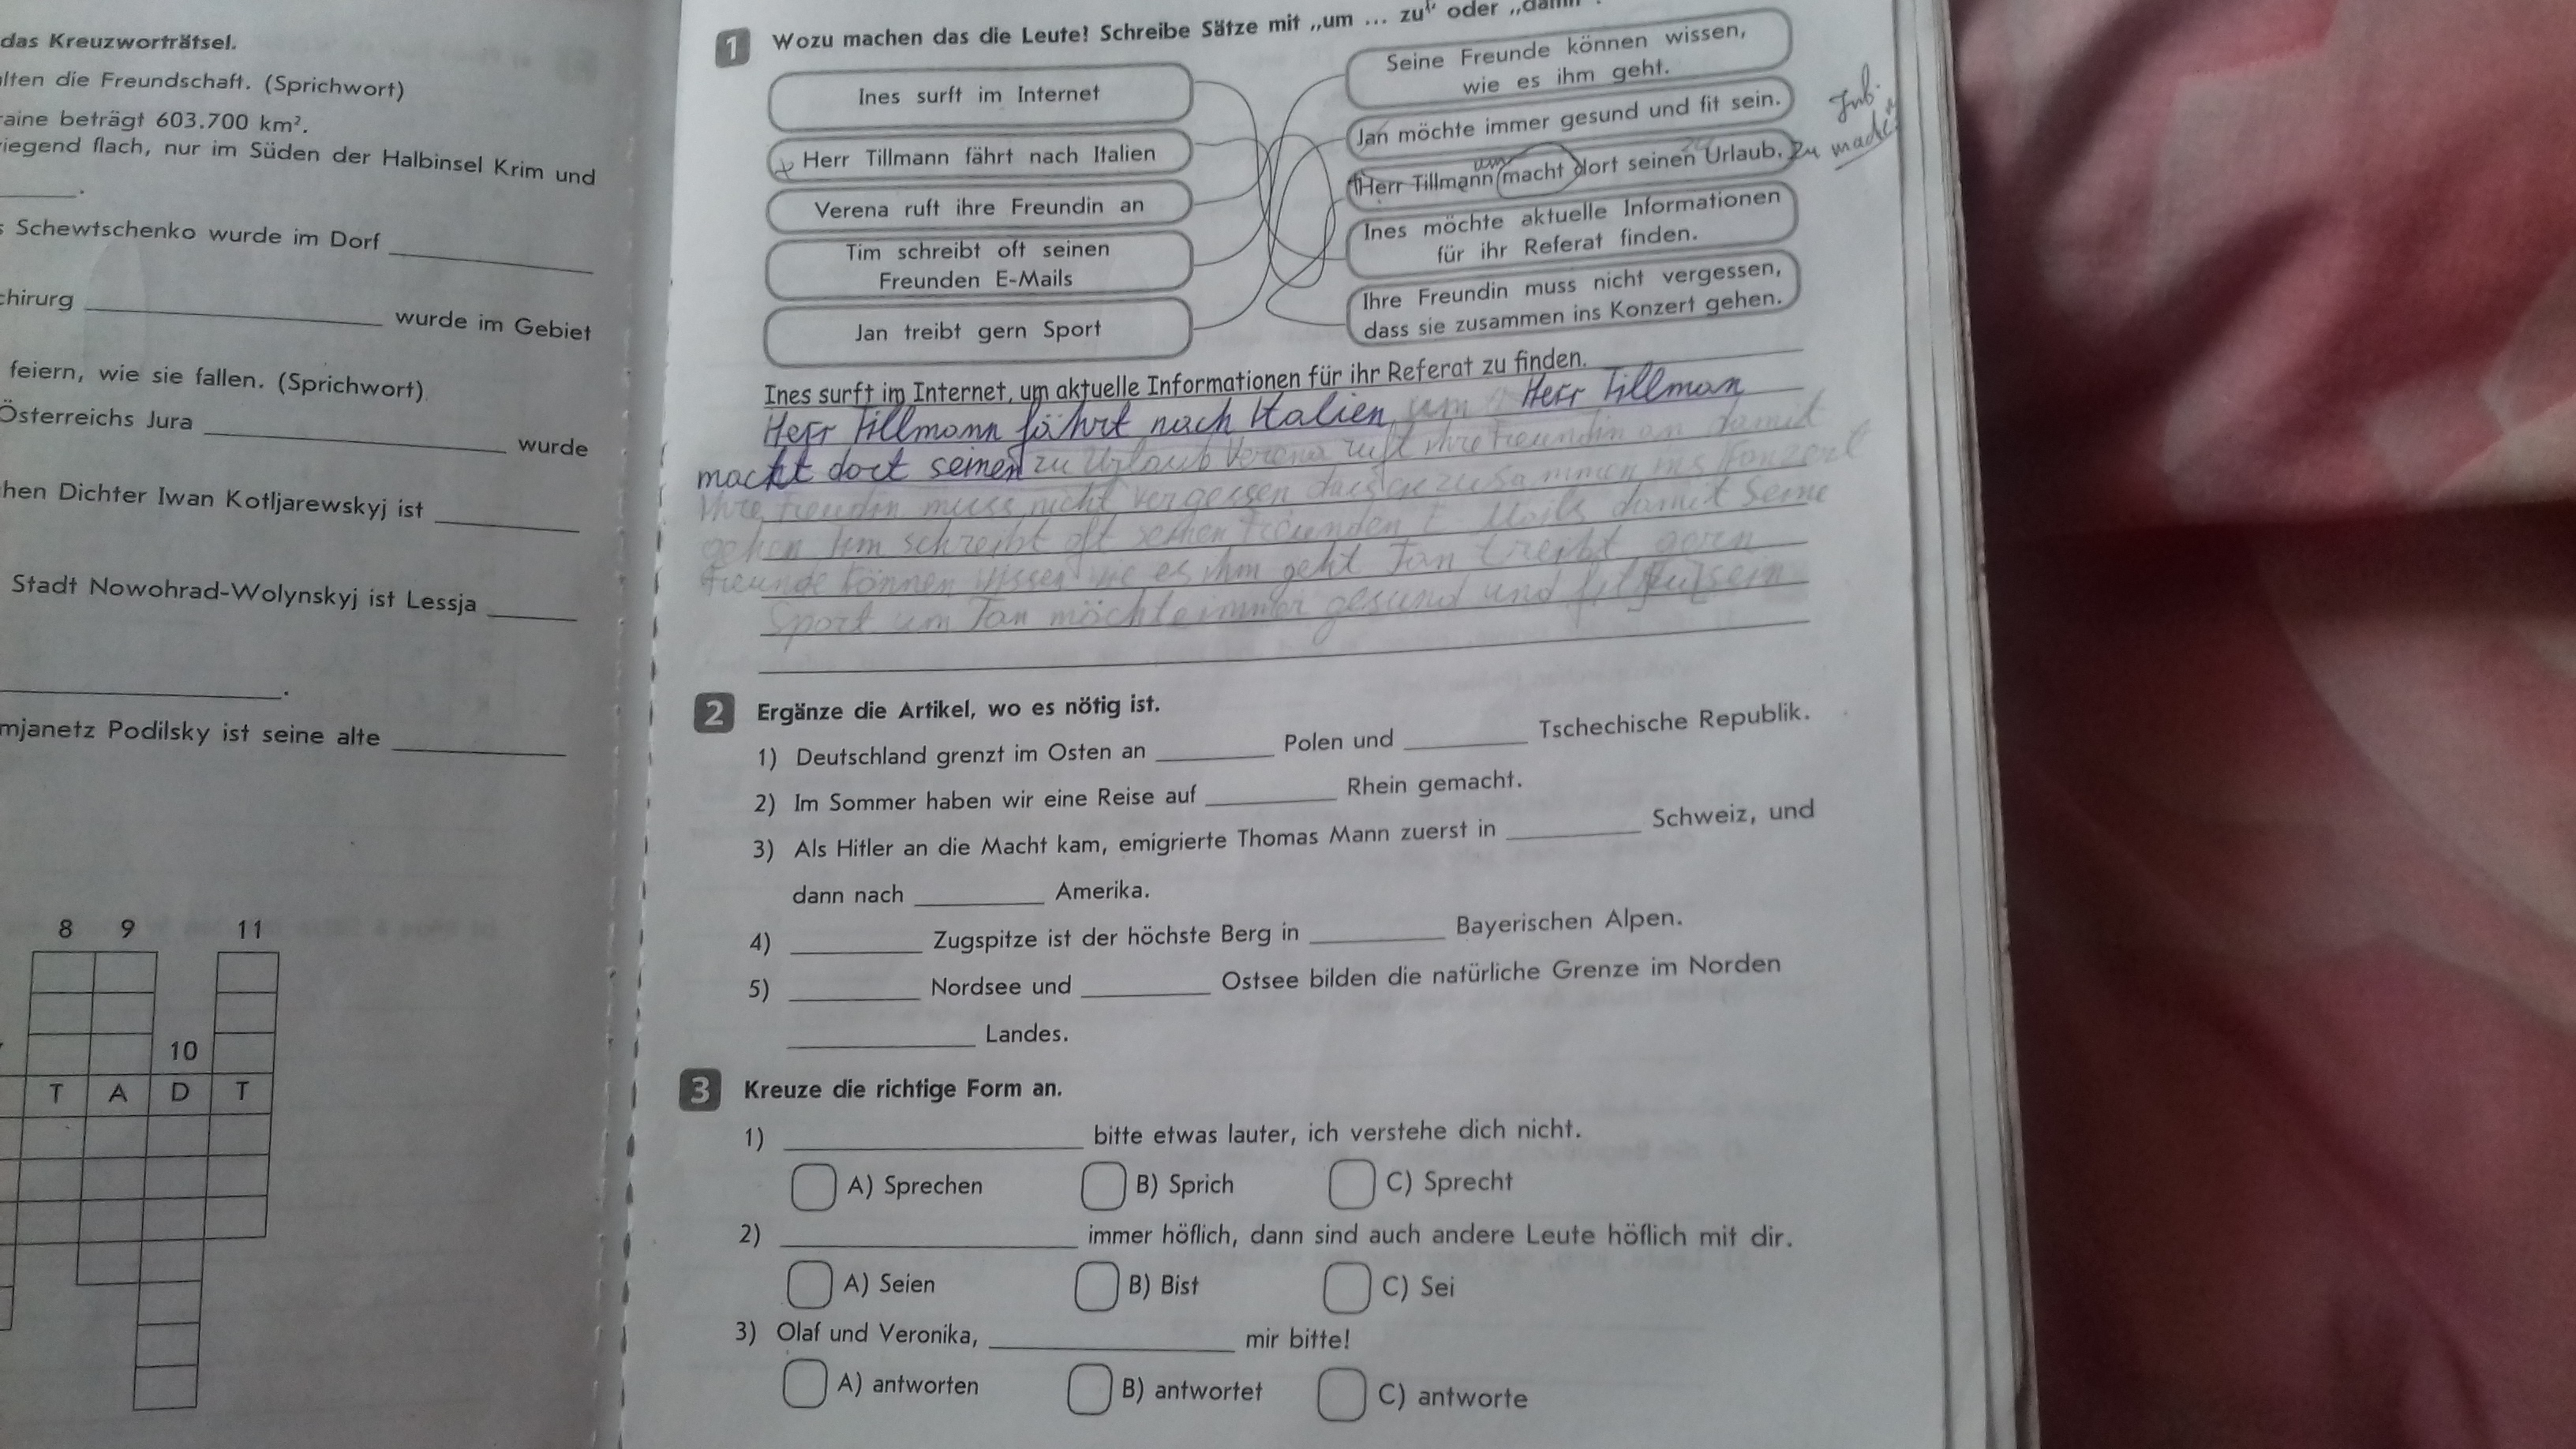 das Kreuzworträtsel.
lten die Freundschaft. (Sprichwort)
aine beträgt 603.700 km².
iegend flach, nur im Süden der Halbinsel Krim und
.
Schewtschenko wurde im Dorf
chirurg wurde im Gebiet
feiern, wie sie fallen. (Sprichwort)
Österreichs Jura wurde
hen Dichter Iwan Kotljarewskyj ist
Stadt Nowohrad-Wolynskyj ist Lessja
.
mjanetz Podilsky ist seine alte
8 9 11
10
T A D T
1 Wozu machen das die Leute? Schreibe Sätze mit „um ... zu“ oder „damit“.
Ines surft im Internet
Herr Tillmann fährt nach Italien
Verena ruft ihre Freundin an
Tim schreibt oft seinen
Freunden E-Mails
Jan treibt gern Sport
Seine Freunde können wissen,
wie es ihm geht.
Jan möchte immer gesund und fit sein.
um
Herr Tillmann macht dort seinen Urlaub. zu
Ines möchte aktuelle Informationen
für ihr Referat finden.
Ihre Freundin muss nicht vergessen,
dass sie zusammen ins Konzert gehen.
Ines surft im Internet, um aktuelle Informationen für ihr Referat zu finden.
Herr Tillmann fährt nach Italien um Herr Tillman
macht dort seinen zu Urlaub Verena ruft ihre Freundin an damit
ihre Freundin muss nicht vergessen dass sie zusammen ins Konzert
gehen Tim schreibt oft seinen Freunden E Mails damit seine
Freunde können wissen wie es ihm geht Jan treibt gern
Sport um Jan möchte immer gesund und fit zu sein
2 Ergänze die Artikel, wo es nötig ist.
1) Deutschland grenzt im Osten an Polen und Tschechische Republik.
2) Im Sommer haben wir eine Reise auf Rhein gemacht.
3) Als Hitler an die Macht kam, emigrierte Thomas Mann zuerst in Schweiz, und
dann nach Amerika.
4) Zugspitze ist der höchste Berg in Bayerischen Alpen.
5) Nordsee und Ostsee bilden die natürliche Grenze im Norden
Landes.
3 Kreuze die richtige Form an.
1) bitte etwas lauter, ich verstehe dich nicht.
A) Sprechen B) Sprich C) Sprecht
2) immer höflich, dann sind auch andere Leute höflich mit dir.
A) Seien B) Bist C) Sei
3) Olaf und Veronika, mir bitte!
A) antworten B) antwortet C) antworte